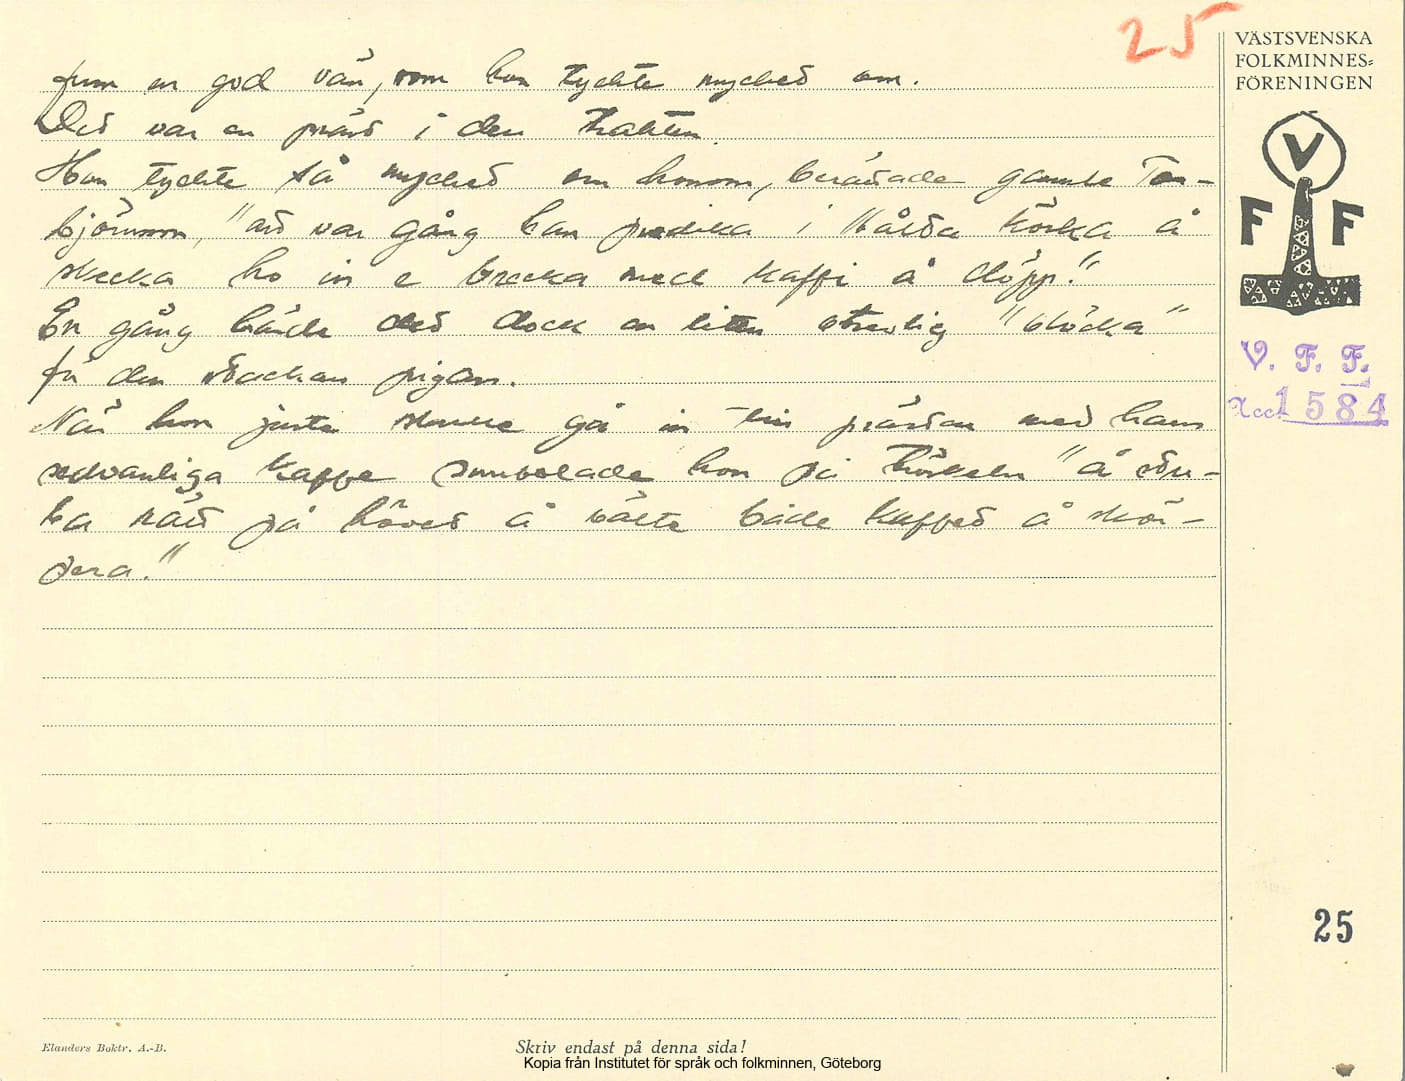 25
VÄSTSVENSKA
FOLKMINNES=
FÖRENINGEN
V
F F
V. F. F.
Acc 1584
en god vän, som hon tyckte mycket om.
Det var en präst i den trakten
Hon tyckte så mycket om honom, berättade gamle Tor-
björnsson, "att var gång han predika i Valda körka å
skecka ho in e brecka med kaffi å döpp."
En gång hände det dock en liten otrevlig "blöcka"
för den stackars pigan.
När hon just skulle gå in till prästen med hans
sedvanliga kaffe snubblade hon på tröskeln "å stu-
ka rätt på hövet å välte både kaffet å skör-
pera."
25
Elanders Boktr. A.-B.
Skriv endast på denna sida!
Kopia från Institutet för språk och folkminnen, Göteborg